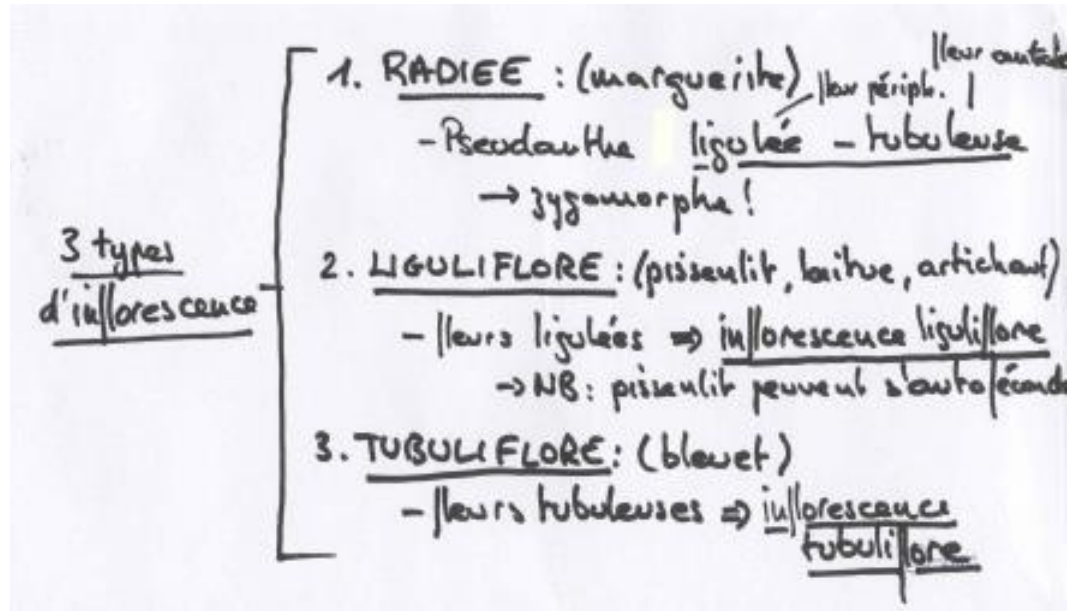 3 types
d'inflorescence
1. RADIEE : (marguerite)
fleur périph.
fleur centrale
- Pseudanthe ligulée - tubuleuse
→ zygomorphe !
2. LIGULIFLORE : (pissenlit, laitue, artichaut)
- fleurs ligulées ⇒ inflorescence liguliflore
→ NB : pissenlit peuvent s'autoféconde
3. TUBULIFLORE : (bleuet)
- fleurs tubuleuses ⇒ inflorescence
tubuliflore